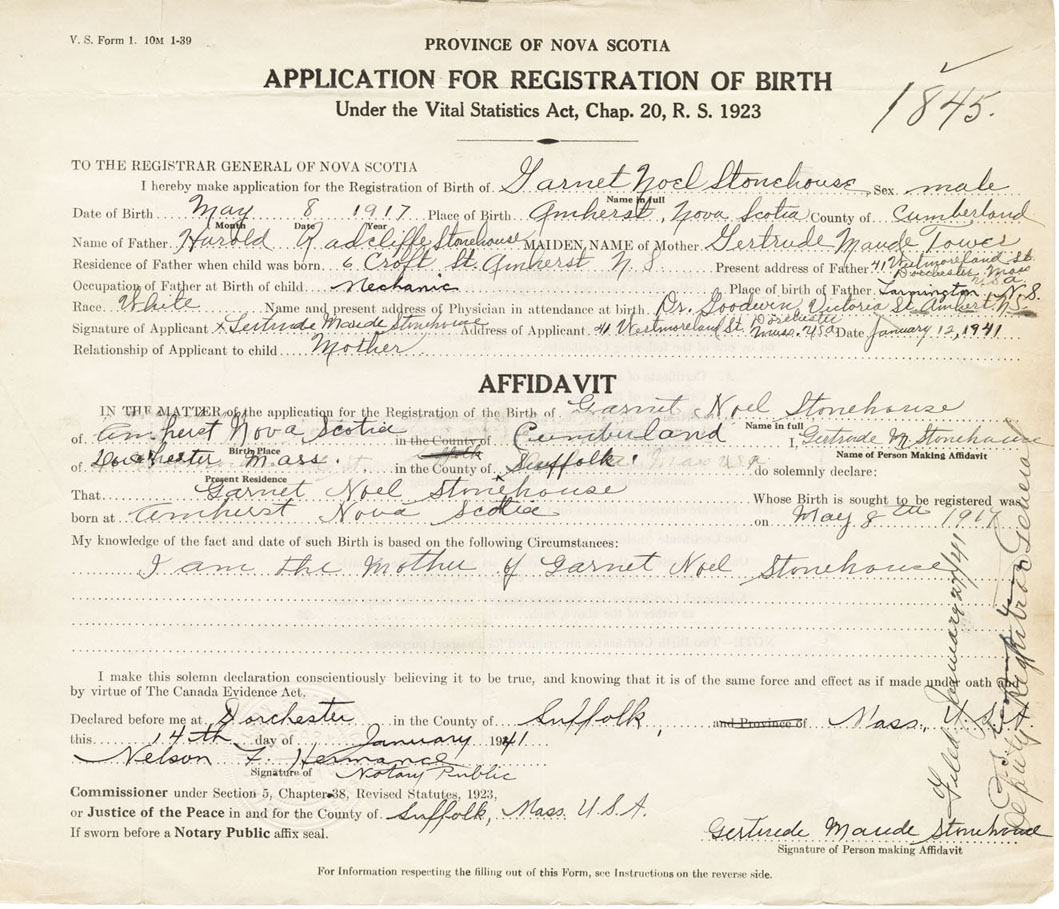 V. S. Form 1. 10M 1-39
PROVINCE OF NOVA SCOTIA
APPLICATION FOR REGISTRATION OF BIRTH
Under the Vital Statistics Act, Chap. 20, R. S. 1923
1845.
TO THE REGISTRAR GENERAL OF NOVA SCOTIA
I hereby make application for the Registration of Birth of Garnet Noel Stonehouse, Sex male
Name in full
Date of Birth May 8 1917 Place of Birth Amherst, Nova Scotia County of Cumberland
Month Date Year
Name of Father Harold Radcliffe Stonehouse MAIDEN NAME of Mother Gertrude Maude Tower
Residence of Father when child was born 6 Croft St. Amherst N S Present address of Father 41 Westmoreland St. Dorchester Mass U.S.A
Occupation of Father at Birth of child Mechanic Place of birth of Father N.S.
Race White Name and present address of Physician in attendance at birth Dr. Goodwin, Victoria St. Amherst N.S.
Signature of Applicant x Gertrude Maude Stonehouse Address of Applicant 41 Westmoreland St, Dorchester Mass. USA Date January 12, 1941
Relationship of Applicant to child Mother
AFFIDAVIT
IN THE MATTER of the application for the Registration of the Birth of Garnet Noel Stonehouse
Name in full
of Amherst Nova Scotia in the County of Cumberland I, Gertrude M. Stonehouse
Birth Place Name of Person Making Affidavit
of Dorchester Mass. in the County of Suffolk do solemnly declare:
Present Residence
That Garnet Noel Stonehouse Whose Birth is sought to be registered was
born at Amherst Nova Scotia on May 8th 1917
My knowledge of the fact and date of such Birth is based on the following Circumstances:
I am the Mother of Garnet Noel Stonehouse
I make this solemn declaration conscientiously believing it to be true, and knowing that it is of the same force and effect as if made under oath and
by virtue of The Canada Evidence Act.
Declared before me at Dorchester in the County of Suffolk, and Province of Mass., U.S.
this 14th day of January 1941
Nelson F. Hermance
Signature of Notary Public
Commissioner under Section 5, Chapter 38, Revised Statutes, 1923,
or Justice of the Peace in and for the County of Suffolk, Mass. U.S.A.
If sworn before a Notary Public affix seal.
Gertrude Maude Stonehouse
Signature of Person making Affidavit
For Information respecting the filling out of this Form, see Instructions on the reverse side.
Filed January 27/41
Deputy Registrar General